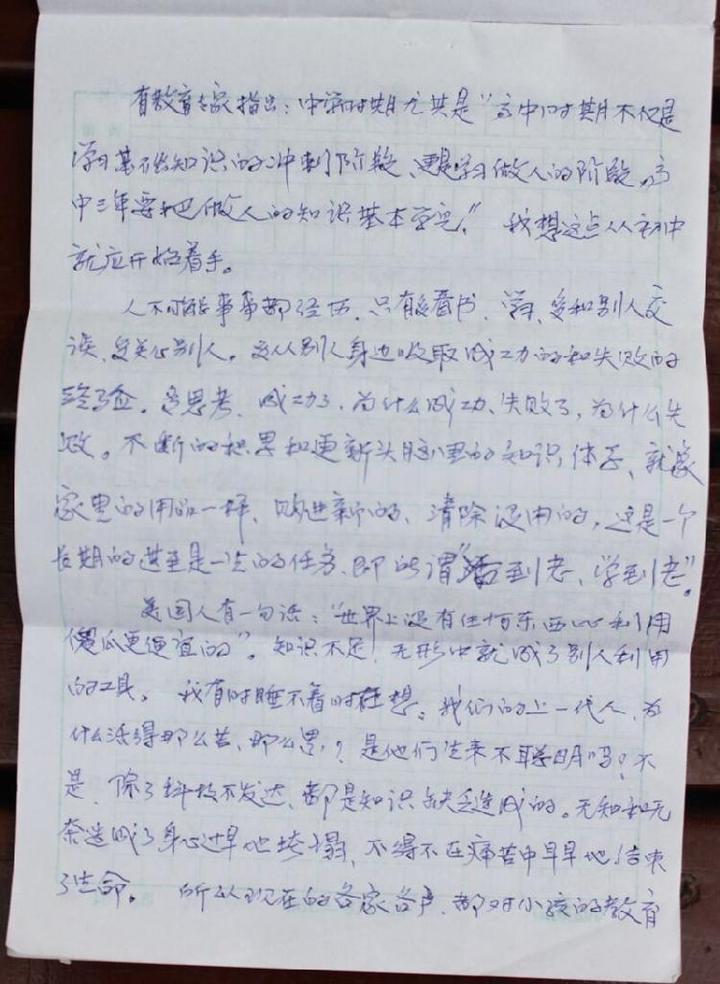 有教育专家指出：中学时期尤其是“高中时期不仅是
学习基础知识的冲刺阶段、更是学习做人的阶段。高
中三年要把做人的知识基本学完。”我想这点从初中
就应开始着手。
人不可能事事都经历，只有多看书、学习、多和别人交
谈、多关心别人。多从别人身边吸取成功的和失败的
经验。多思考，成功了，为什么成功、失败了，为什么失
败。不断的积累和更新头脑里的知识体系、就象
家里的用品一样、购进新的、清除没用的，这是一个
长期的甚至是一生的任务，即所谓“活到老、学到老”。
美国人有一句话：“世界上没有任何东西比利用
傻瓜更便宜的”。知识不足，无形中就成了别人利用
的工具。我有时睡不着时在想。我们的上一代人，为
什么活得那么苦、那么累？是他们生来不聪明吗？不
是，除了科技不发达、都是知识缺乏造成的。无知和无
奈造成了身心过早地垮塌，不得不在痛苦中早早地结束
了生命。所以现在的各家各户，都对小孩的教育